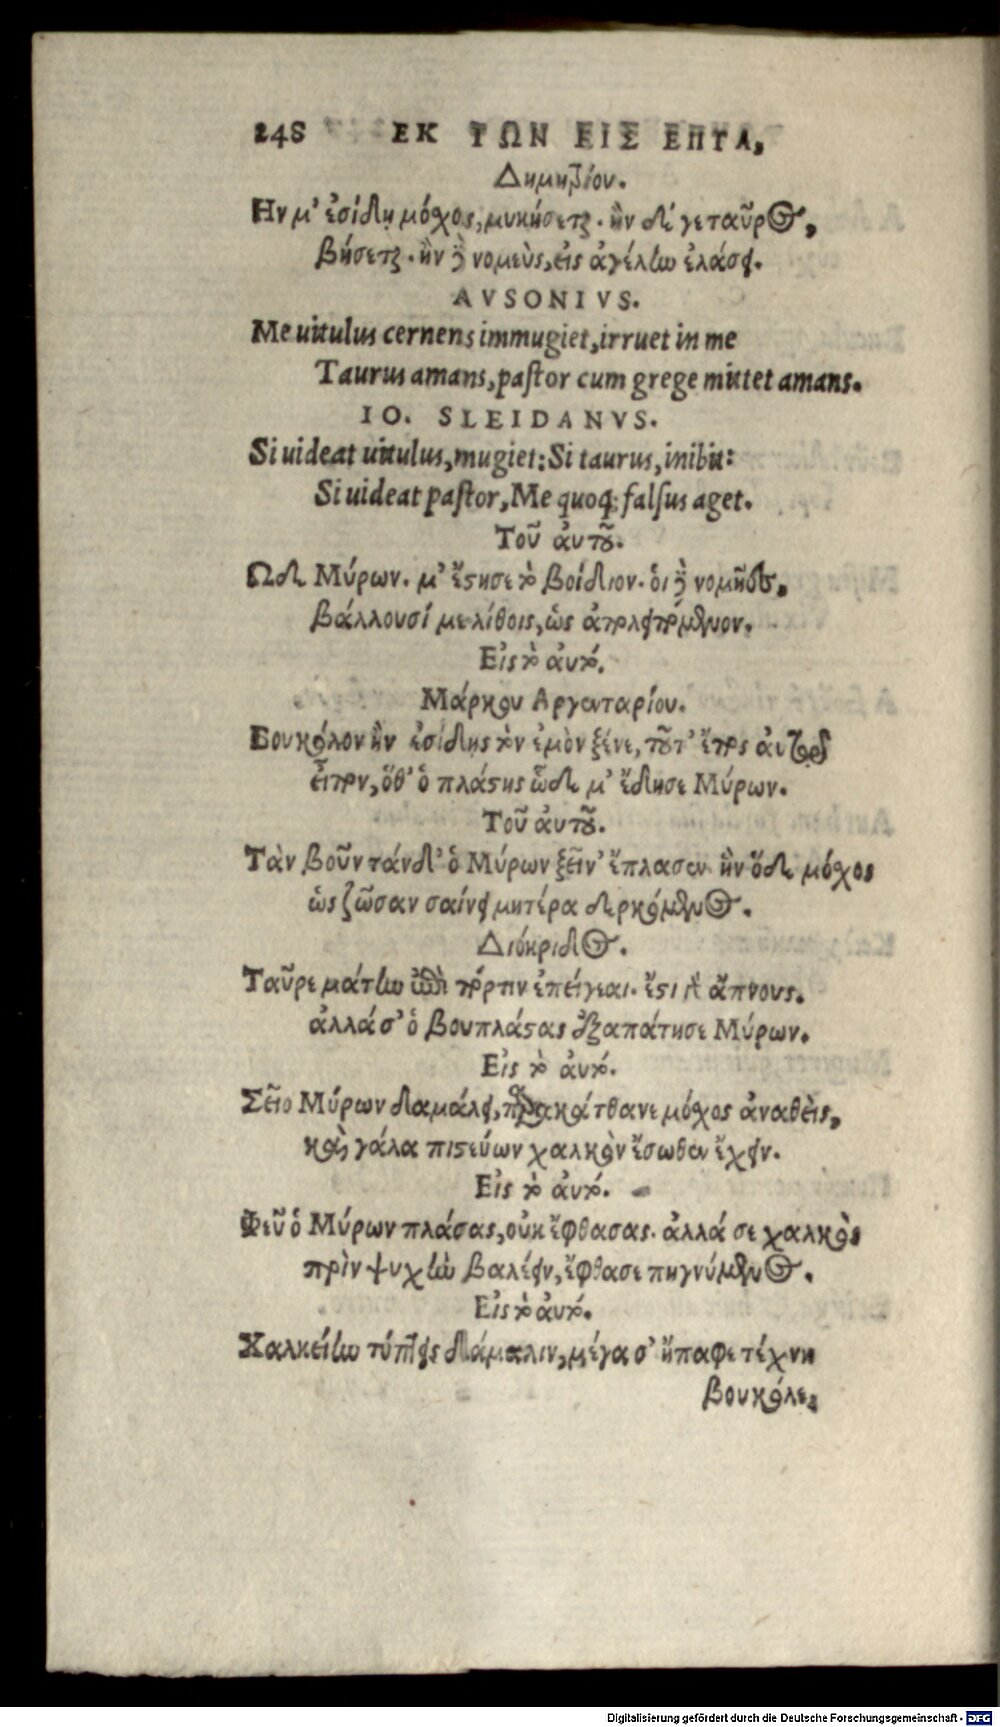 248 ΕΚ ΤΩΝ ΕΙΣ ΕΠΤΑ,
Δημητρίου.
Ην μ' ἐσίδῃ μόχος, μυκήσεται· ἢν δέ γε ταῦρος,
βήσεται· ἢν δὲ νομεὺς, εἰς ἀγέλην ἐλάσει.
AVSONIVS.
Me uitulus cernens immugiet, irruet in me
Taurus amans, pastor cum grege mittet amans.
IO. SLEIDANVS.
Si uideat uitulus, mugiet: Si taurus, inibit:
Si uideat pastor, Me quoq; falsus aget.
Τοῦ ἀυτοῦ.
Ωδε Μύρων. μ' ἔστησε τὸ βοίδιον· ὁι δὲ νομῆες,
βάλλουσί με λίθοις, ὡς ἀπολειπόμενον.
Εἰς τὸ ἀυτό.
Μάρκου Αργενταρίου.
Βουκόλον ἢν ἐσίδης τὸν ἐμὸν ξένε, τοῦτ' ἔπος ἀυτῷ
εἶπον, ὅθ' ὁ πλάστης ὧδε μ' ἔδησε Μύρων.
Τοῦ ἀυτοῦ.
Τὰν βοῦν τάνδ' ὁ Μύρων ξεῖν' ἔπλασεν ἢν ὅδε μόχος
ὡς ζῶσαν σαίνει μητέρα δερκόμενος.
Διόκριδος.
Ταῦρε μάτην ἐπὶ πόρτιν ἐπείγεαι. ἔστι γὰρ ἄπνους.
ἀλλά σ' ὁ βουπλάστας ἐξαπάτησε Μύρων.
Εἰς τὸ ἀυτό.
Σεῖο Μύρων δαμάλει, παρακάτθανε μόχος ἀναθεὶς,
καὶ γάλα πιστεύων χαλκὸν ἔσωθεν ἔχειν.
Εἰς τὸ ἀυτό.
Φεῦ ὁ Μύρων πλάσας, οὐκ ἔφθασας. ἀλλά σε χαλκὸς
πρὶν ψυχὴν βαλέειν, ἔφθασε πηγνύμενος.
Εἰς τὸ ἀυτό.
Χαλκείην τύπτεις δάμαλιν, μέγα σ' ἤπαφε τέχνη
βουκόλε,
Digitalisierung gefördert durch die Deutsche Forschungsgemeinschaft - DFG